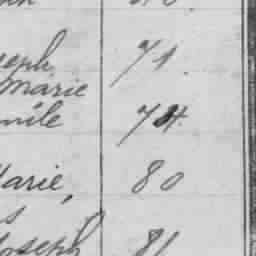 seph 71.
Marie
mile 74.
Marie, 80
s
Joseph 81